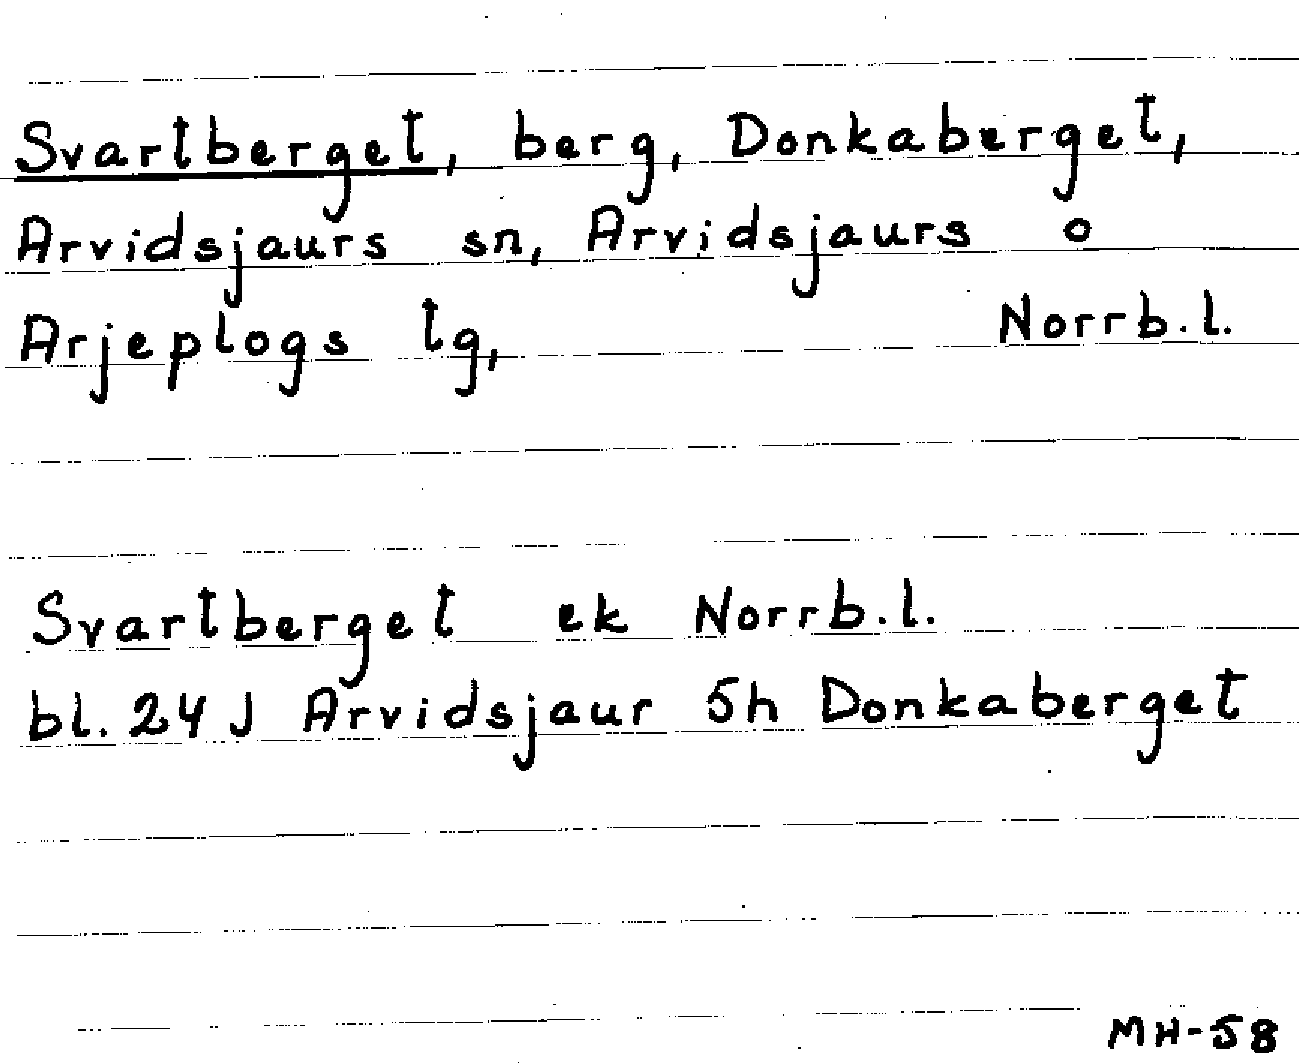 Svartberget, berg, Donkaberget,
Arvidsjaurs sn, Arvidsjaurs o
Arjeplogs tg, Norrb.l.
Svartberget ek Norrb.l.
bl. 24 J Arvidsjaur 5h Donkaberget
MH-58